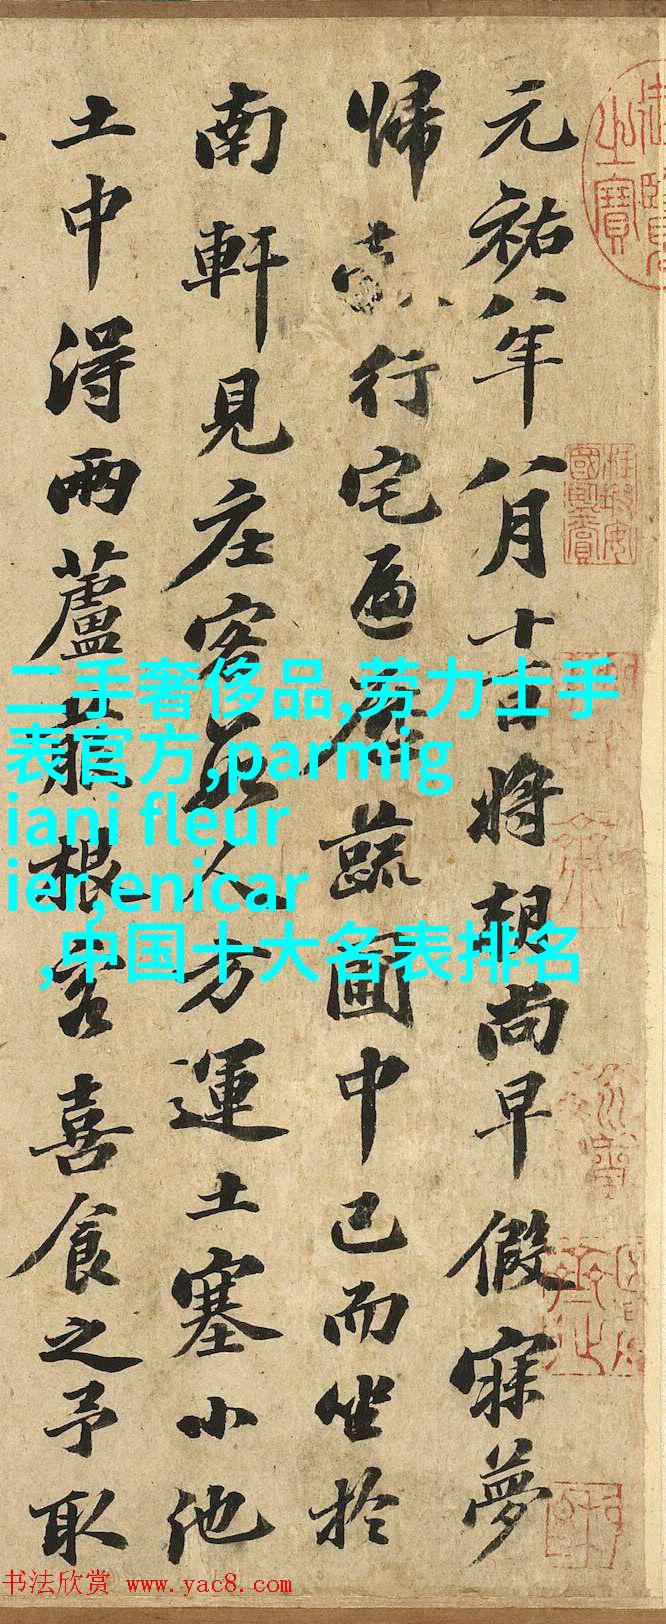 元祐八年八月十一日將朝尚早假寐夢
歸行宅遍歷蔬圃中已而坐於
南軒見庄客數人方運土塞小池
土中得兩蘆菔根客喜食之予取
二手奢侈品,劳力士手
表官方,parmig
iani fleur
ier,enicar
,中国十大名表排名
书法欣赏 www.yac8.com